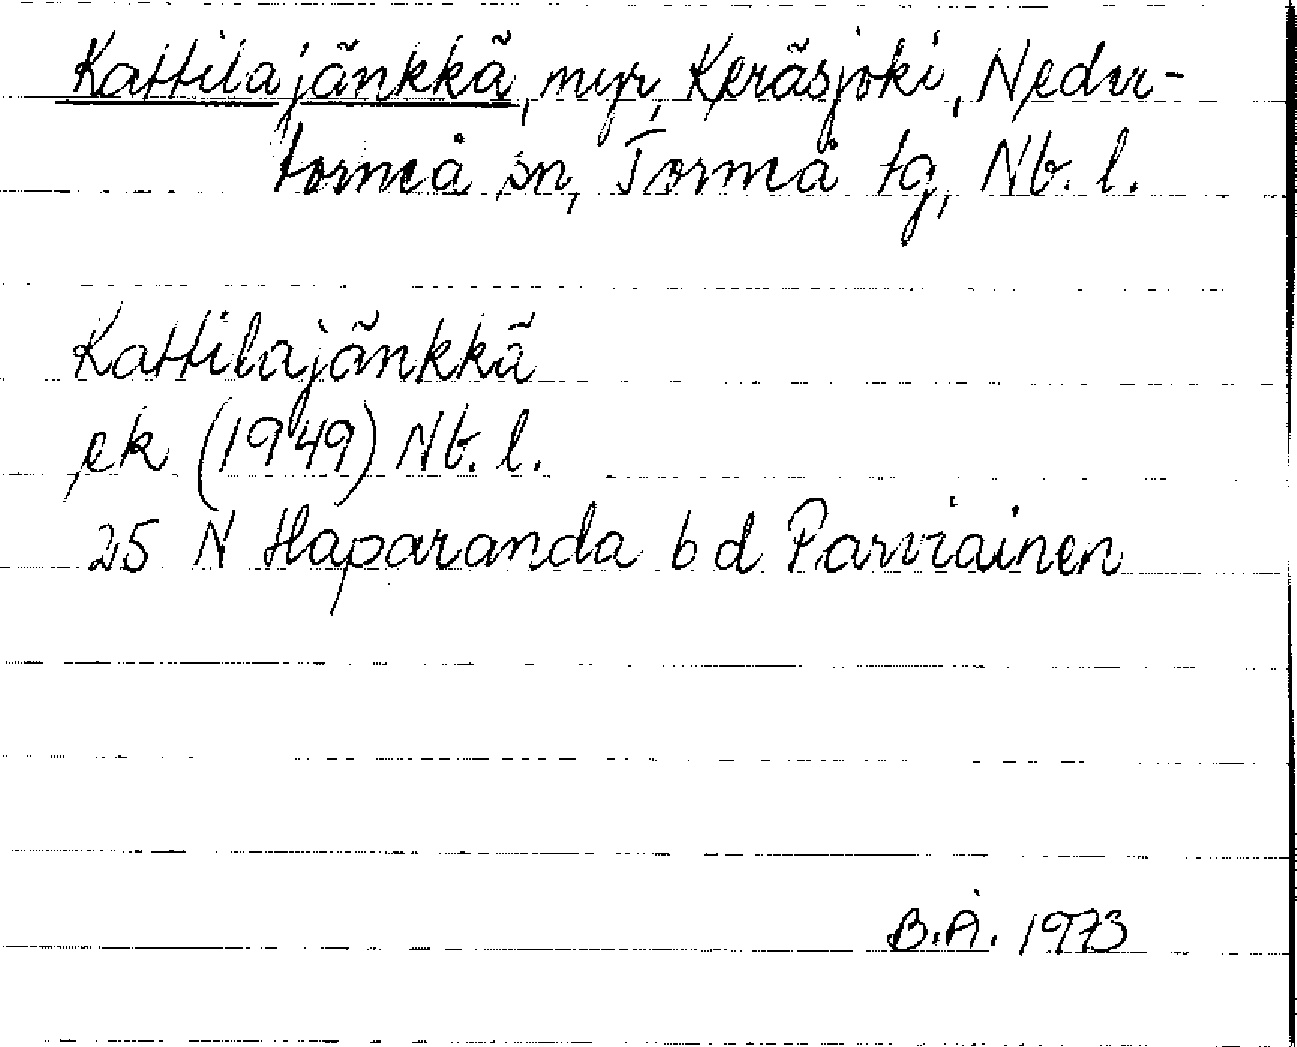 Kattilajänkkä, myr, Keräsjoki, Neder-
torneå sn, Torneå tg, Nb. l.
Kattilajänkkä
ek (1949) Nb. l.
25 N Haparanda b d Parviainen
B.Å. 1973